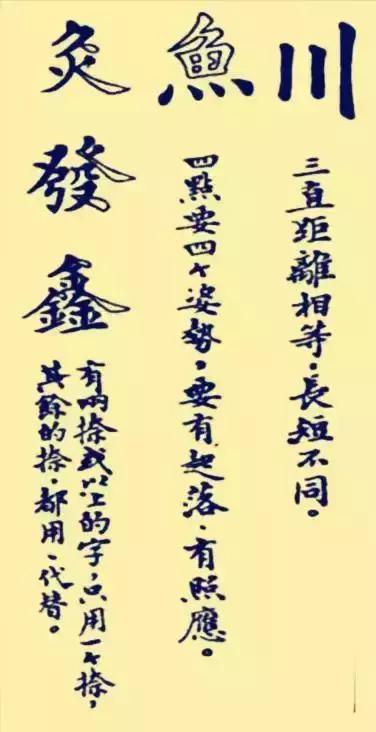 川
三直距離相等,長短不同。
魚
四點要四个姿勢,要有起落,有照應。
灸
發
鑫
有兩捺或以上的字,只用一个捺,
其餘的捺,都用、代替。